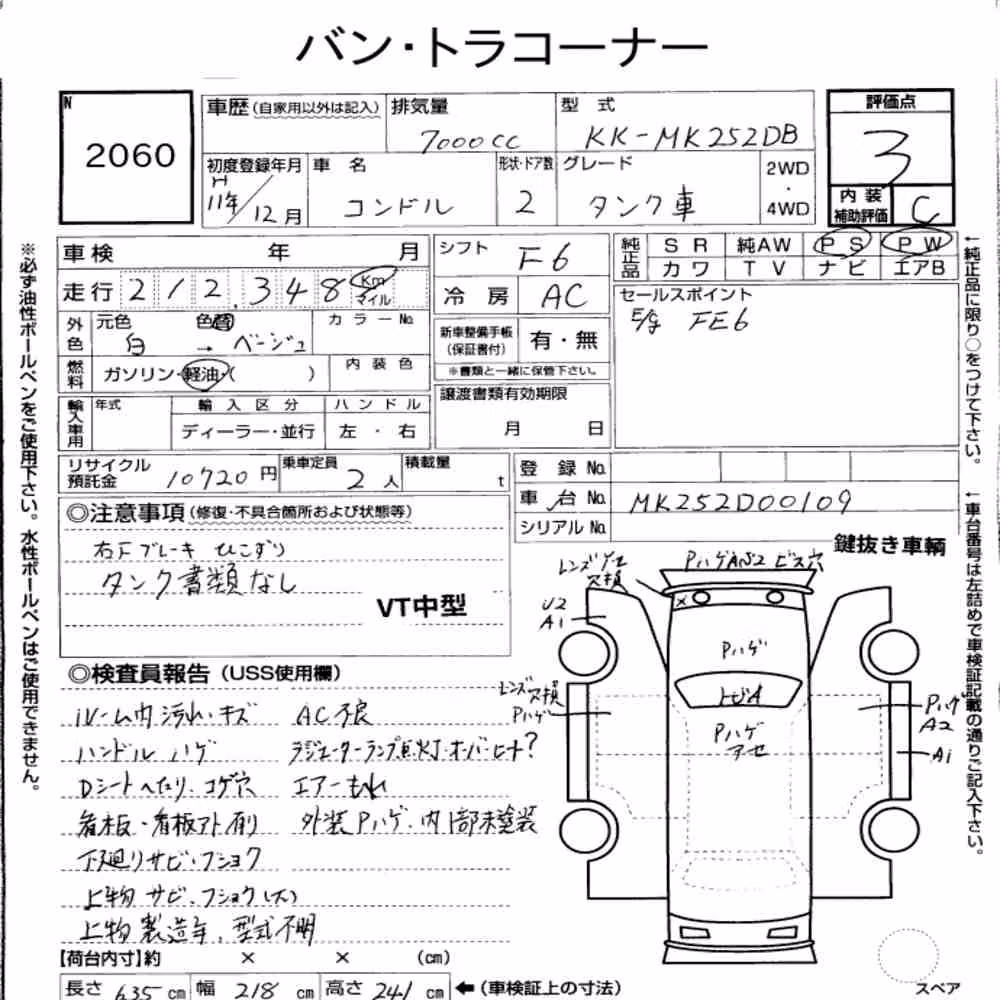 バン・トラコーナー
N
2060
車歴(自家用以外は記入)
排気量
7000cc
型 式
KK-MK252DB
評価点
3
内装
補助評価
C
初度登録年月
H
11年/12月
車 名
コンドル
形状・ドア数
2
グレード
タンク車
2WD
・
4WD
車検 年 月
走行 212,348 Km
マイル
外色
元色
白
→
色替
ベージュ
カラーNo
燃料
ガソリン・軽油・( )
内装色
輸入車用
年式
輸入区分
ディーラー・並行
ハンドル
左・右
シフト
F6
冷房
AC
新車整備手帳
(保証書付)
有・無
※書類と一緒に保管下さい。
譲渡書類有効期限
月 日
純正品
SR 純AW PS PW
カワ TV ナビ エアB
セールスポイント
E/g FE6
リサイクル
預託金
10720円
乗車定員
2人
積載量
t
登録No.
車台No.
MK252D00109
シリアルNo.
◎注意事項(修復・不具合箇所および状態等)
右下ブレーキ ひこずり
タンク書類なし
VT中型
鍵抜き車輌
◎検査員報告(USS使用欄)
ルーム内汚れ・キズ
ハンドル ハゲ
Dシートへたり、コゲ穴
看板・看板アト有り
下廻りサビ・フショク
上物サビ、フショク(大)
上物製造年、型式不明
AC不良
ラジエーターランプ点灯・オーバーヒート?
エアーもれ
外装Pハゲ・内1部未塗装
レンズ ワレ
欠損
PハゲANS2 ビス穴
U2
A1
Pハゲ
トビA
Pハゲ
アセ
レンズ欠損
Pハゲ
Pハゲ
A2
A1
【荷台内寸】約 × × (cm)
長さ 635 cm 幅 218 cm 高さ 241 cm ←(車検証上の寸法)
スペア
※必ず油性ボールペンをご使用下さい。水性ボールペンはご使用できません。
←純正品に限り○をつけて下さい。
←車台番号は左詰めで車検証記載の通りご記入下さい。